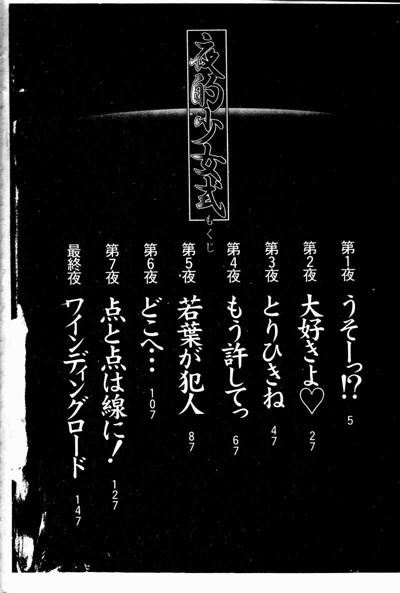 夜的少女式
もくじ
第1夜 うそーっ!? 5
第2夜 大好きよ♡ 27
第3夜 とりひきね 47
第4夜 もう許してっ 67
第5夜 若葉が犯人 87
第6夜 どこへ… 107
第7夜 点と点は線に! 127
最終夜 ワインディングロード 147